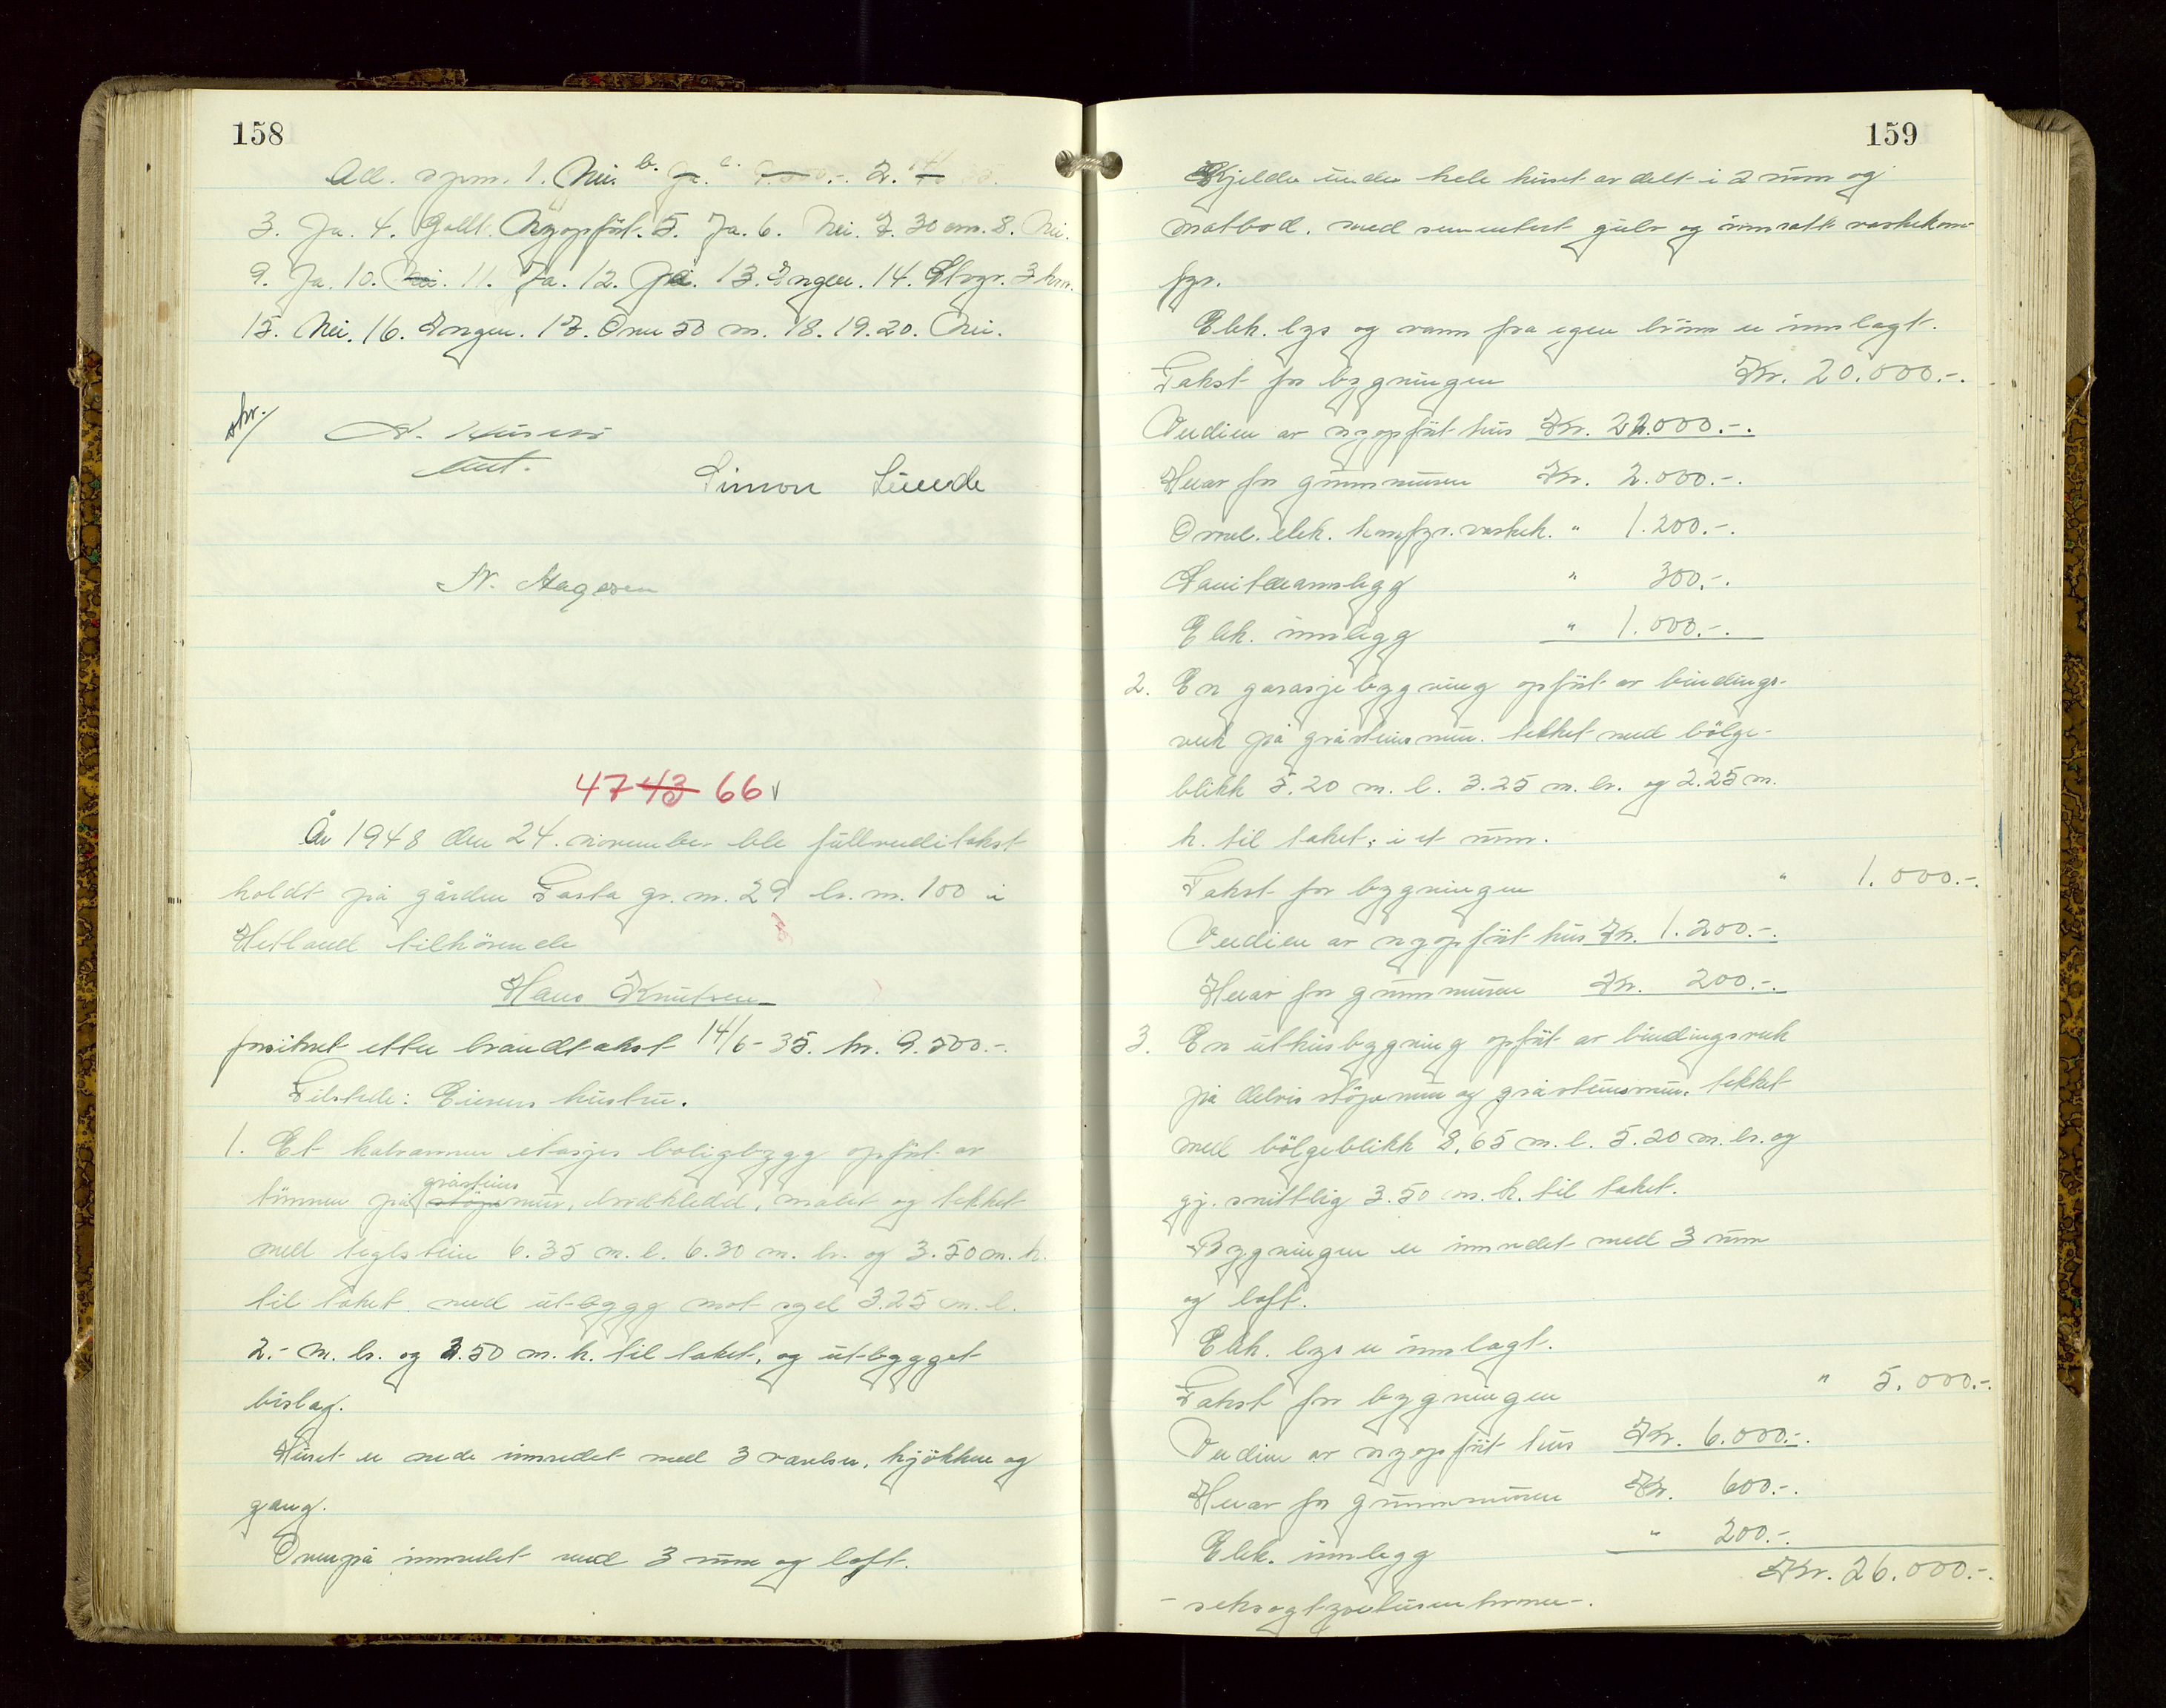 158
All. spm. 1. Nei. b. Ja. c. 2.
3. Ja. 4. Godt. Nyopført. 5. Ja. 6. Nei. 7. 30 cm. 8. Nei.
9. Ja. 10. Nei. 11. Ja. 12. Ja. 13. Ingen. 14. Stvgr. 3 km.
15. Nei. 16. Ingen. 17. Omr 50 m. 18. 19. 20. Nei.
N.
Simon Lunde
N. Aagesen
47 43 66
År 1948 den 24. november ble fullverditakst
holdt på gården Tasta gr. nr. 29 br. nr. 100 i
Hetland tilhörende
Hans Knutsen
forsikret etter branntakst 14/6-35. kr. 9.500.-.
Tilstede: Eierens hustru.
1. Et halvannen etasjes boligbygg opført av
tömmer på gråsteins støpemur, bordkledd, malet og tekket
med teglstein 6.35 m. l. 6.30 m. br. og 3.50 m. h.
til taket med utbygg mot syd 3.25 m. l.
2.- m. br. og 3.50 m. h. til taket, og utbygget
bislag.
Huset er nede innredet med 3 værelser, kjökken og
gang.
Ovenpå innredet med 3 rum og loft.
159
Kjelder under hele huset avdelt i 2 rum og
matbod, med sementert gulv og innsatt vaskekom-
fyr.
Elek. lys og vann fra egen brönn er innlagt.
Takst for bygningen Kr. 20.000.-.
Verdien av nyopført hus Kr. 22.000.-.
Herav for grunnmuren Kr. 2.000.-.
Omv. elek. komfyr. vaskek. " 1.200.-.
Sanitæranlegg " 300.-.
Elek. innlegg " 1.000.-.
2. En garasjebygning opført av bindings-
verk på gråsteinsmur. tekket med bölge-
blikk 5.20 m. l. 3.25 m. br. og 2.25 m.
h. til taket; i et rum.
Takst for bygningen " 1.000.-.
Verdien av nyopført hus Kr. 1.200.-.
Herav for grunnmuren Kr. 200.-.
3. En uthusbygning opført av bindingsverk
på delvis støpemur og gråsteinsmur. tekket
med bölgeblikk 8,65 m. l. 5.20 m. br. og
gj. snittlig 3.50 m. h. til taket.
Bygningen er innredet med 3 rum
og loft.
Elek. lys er innlagt.
Takst for bygningen " 5.000.-.
Verdien av nyopført hus Kr. 6.000.-.
Herav for grunnmuren Kr. 600.-.
Elek. innlegg " 200.-.
Kr. 26.000.-.
- seksogtyvetusen kroner -.